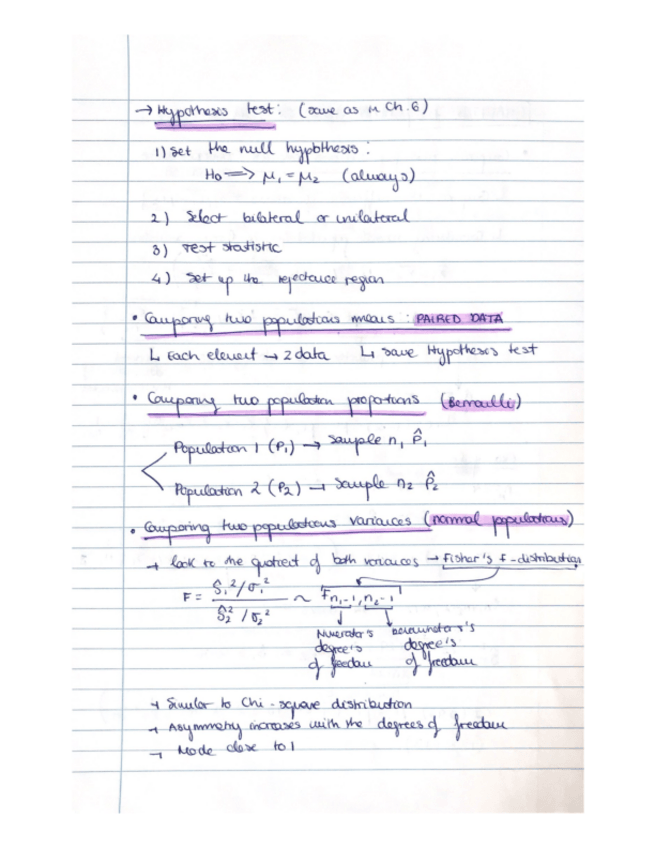 → Hypothesis test: (same as in Ch.6)
1) Set the null hypothesis:
H₀ ⟹ μ₁ = μ₂ (always)
2) Select bilateral or unilateral
3) Test statistic
4) Set up the rejectance region
• Comparing two populations means: PAIRED DATA
↳ Each element → 2 data ↳ Same Hypothesis test
• Comparing two population proportions (Bernoulli)
Population 1 (P₁) → Sample n₁ P̂₁
Population 2 (P₂) → Sample n₂ P̂₂
• Comparing two populations variances (normal populations)
→ look to the quotient of both variances → Fisher's f-distribution
F = Ŝ₁²/σ₁² / Ŝ₂²/σ₂² ~ Fn₁-1, n₂-1
Numerator's denominator's
degree's degree's
of freedom of freedom
→ Similar to Chi-square distribution
→ Asymmetry increases with the degrees of freedom
→ Mode close to 1